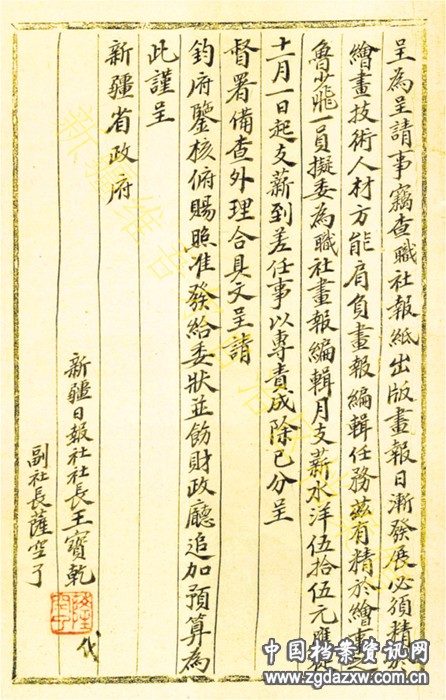 呈為呈請事竊查職社報紙出版畫報日漸發展必須精於
繪畫技術人材方能肩負畫報編輯任務茲有精於繪事之
魯少飛一員擬委為職社畫報編輯月支薪水洋伍拾伍元應從
十一月一日起支薪到差任事以專責成除已分呈
督署備查外理合具文呈請
鈞府鑒核俯賜照准發給委狀並飭財政廳追加預算為
此謹呈
新疆省政府
新疆日報社社長王寶乾
副社長薩空了
代
中国档案资讯网
www.zgdazxw.com.cn